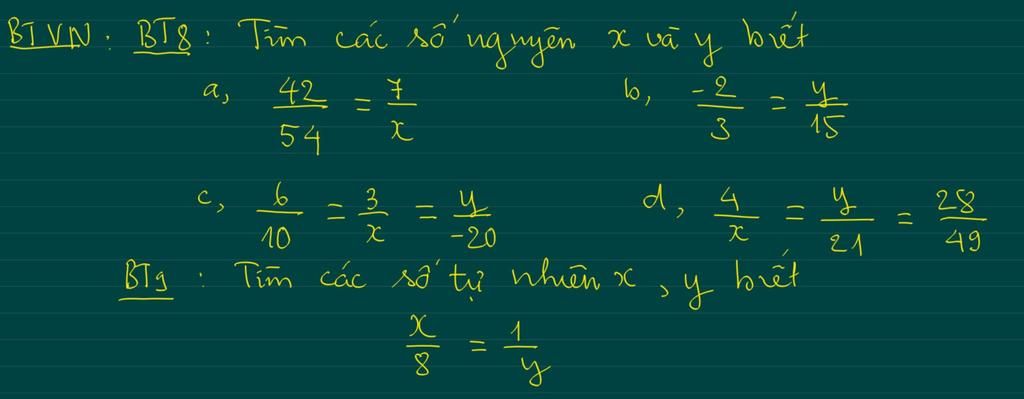 BTVN: BT8: Tìm các số nguyên x và y biết
a, 42/54 = 7/x b, -2/3 = y/15
c, 6/10 = 3/x = y/-20 d, 4/x = y/21 = 28/49
BT9: Tìm các số tự nhiên x, y biết
x/8 = 1/y